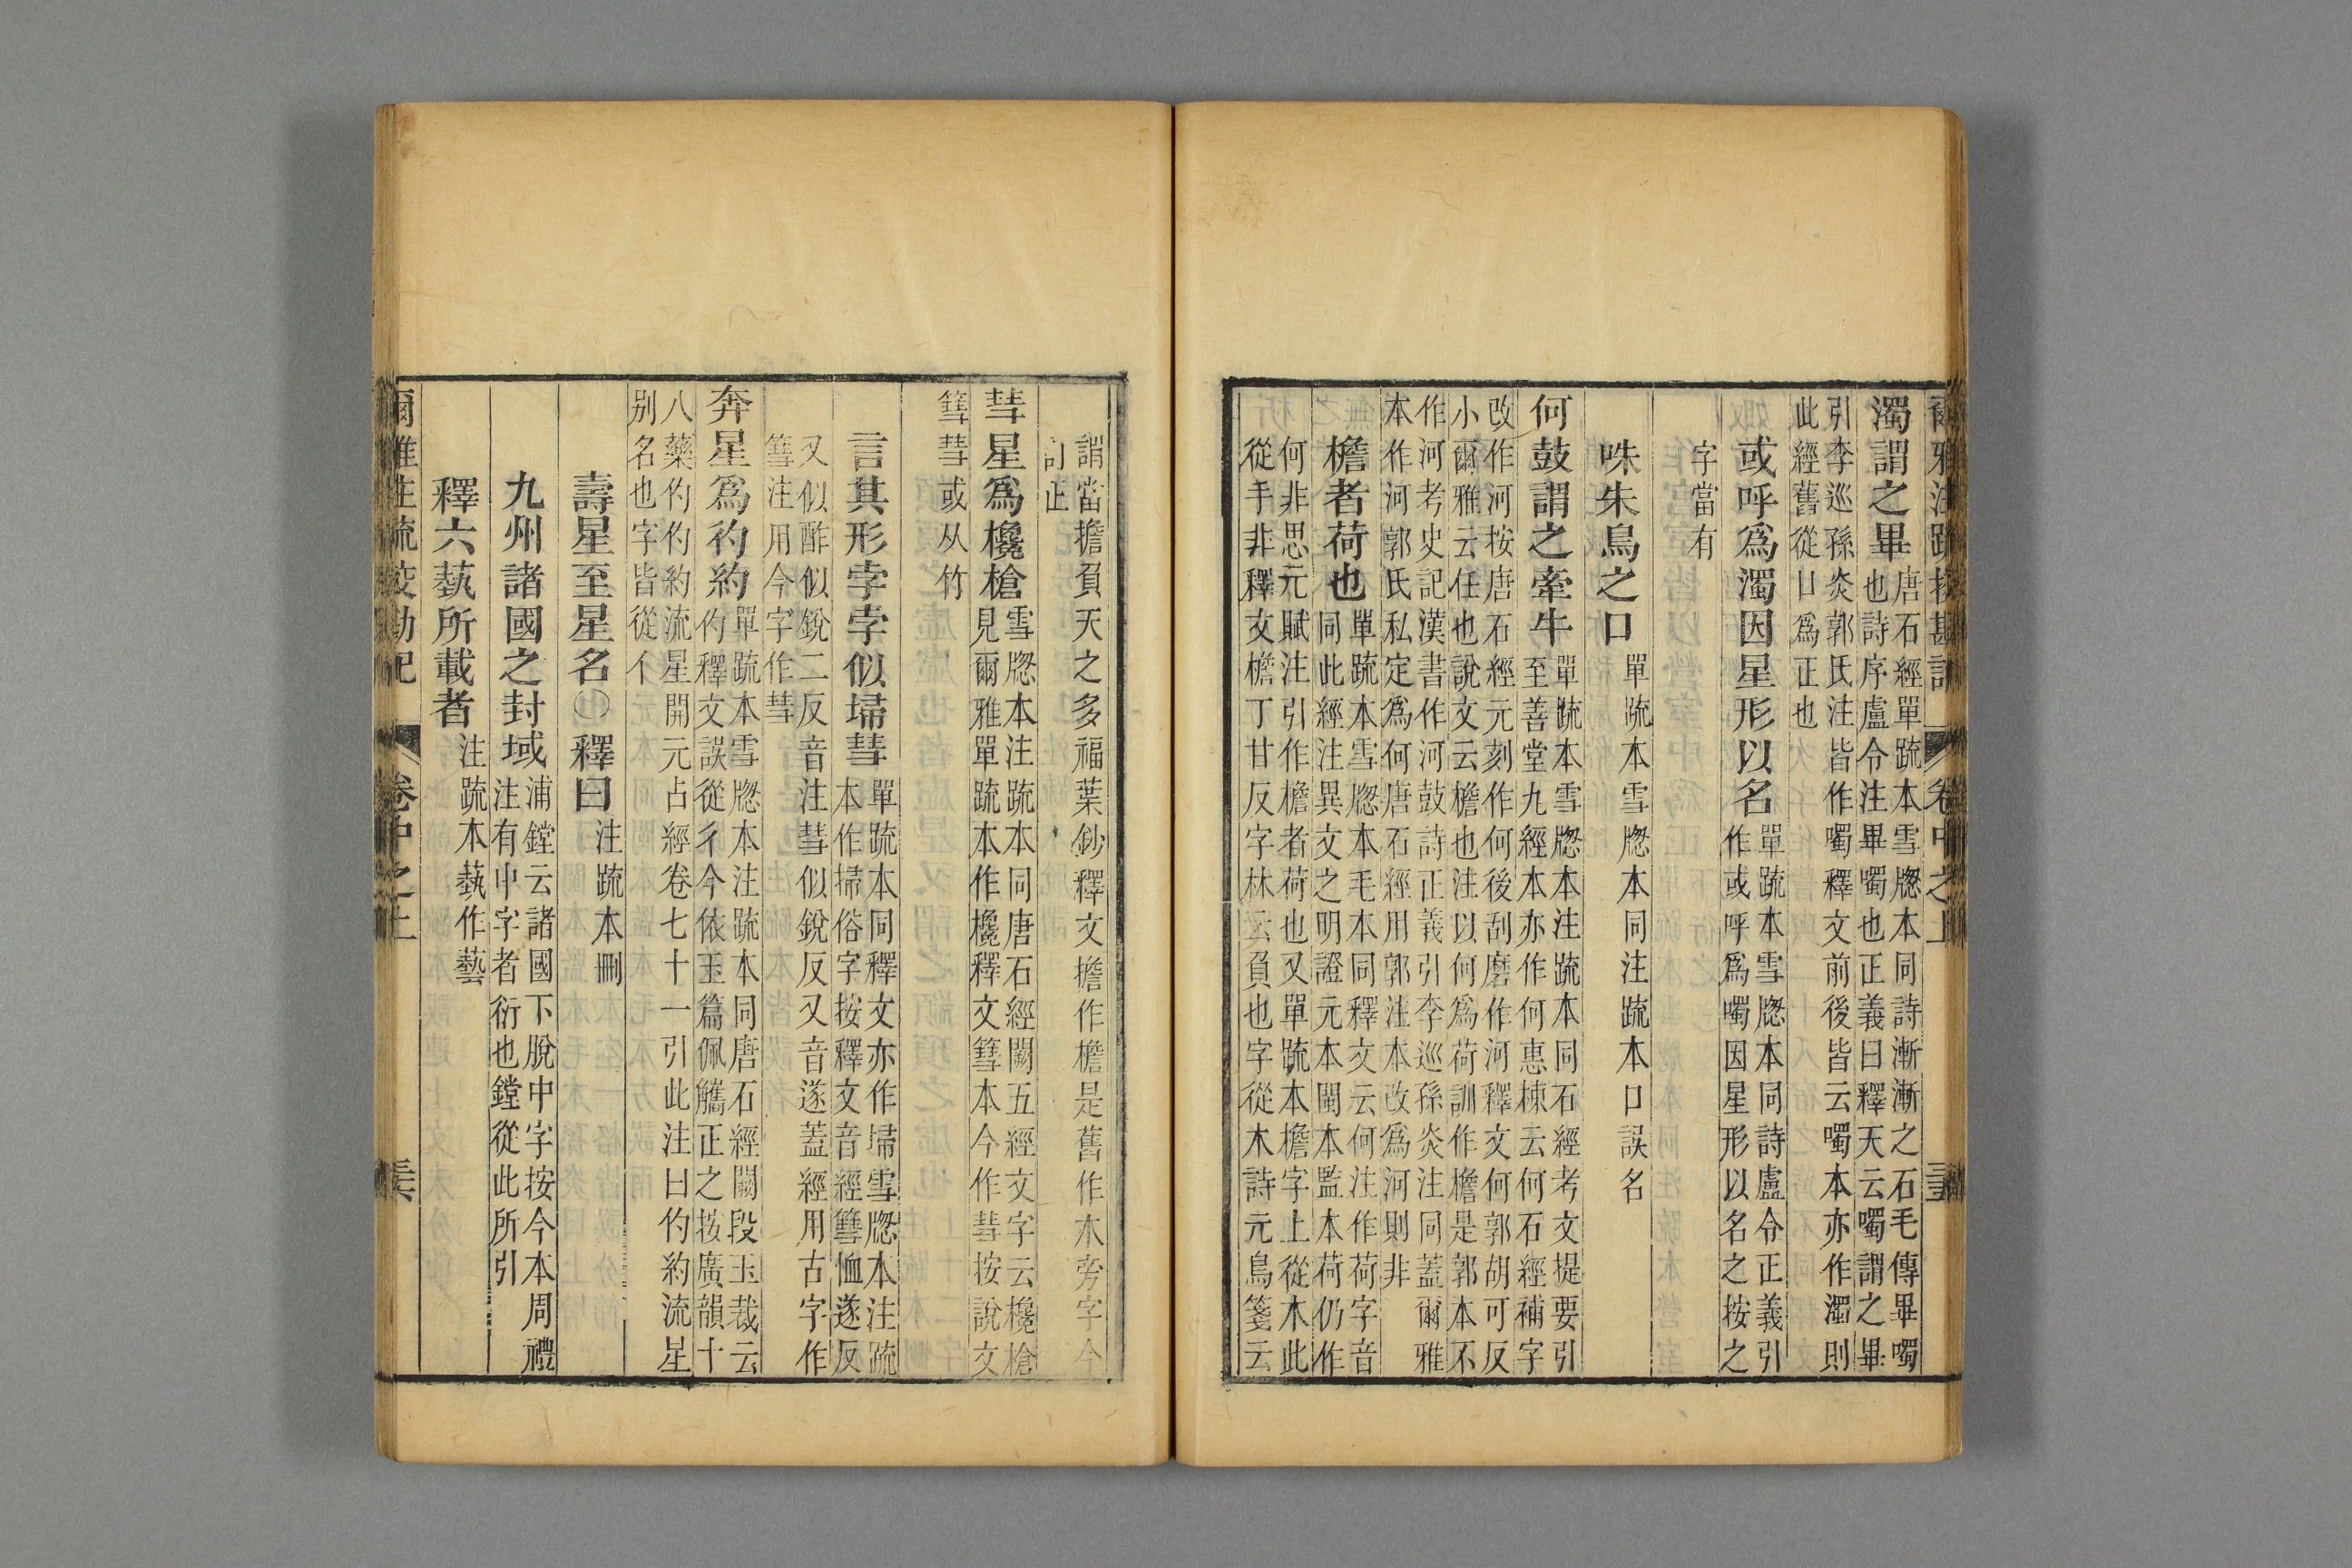 爾雅注疏挍勘記 卷中之上
濁謂之畢 唐石經單疏本雪牕本同詩漸漸之石毛傳畢噣
也詩序盧令注畢噣也正義曰釋天云噣謂之畢
引李巡孫炎郭氏注皆作噣釋文前後皆云噣本亦作濁則
此經舊從口爲正也
或呼爲濁因星形以名 單疏本雪牕本同詩盧令正義引
作或呼爲噣因星形以名之按之
字當有
咮朱鳥之口 單疏本雪牕本同注疏本口誤名
何鼓謂之牽牛 單疏本雪牕本注疏本同石經考文提要引
至善堂九經本亦作何惠棟云何石經補字
改作河按唐石經元刻作何後刮磨作河釋文何郭胡可反
小爾雅云任也說文云檐也注以何爲荷訓作檐是郭本不
作河考史記漢書作河鼓詩正義引李巡孫炎注同蓋爾雅
本作河郭氏私定爲何唐石經用郭注本改爲河則非
檐者荷也 單疏本雪牕本毛本同釋文云何注作荷字音
同此經注異文之明證元本閩本監本荷仍作
何非思元賦注引作檐者荷也又單疏本檐字上從木此
從手非釋文檐丁甘反字林云負也字從木詩元鳥箋云
謂當擔負天之多福葉鈔釋文擔作檐是舊作木旁字今
訂正
彗星爲欃槍 雪牕本注疏本同唐石經闕五經文字云欃槍
見爾雅單疏本作欃釋文篲本今作彗按說文
篲彗或从竹
言其形孛孛似埽彗 單疏本同釋文亦作埽雪牕本注疏
本作掃俗字按釋文音經篲恤遂反
又似酢似銳二反音注彗似銳反又音遂蓋經用古字作
篲注用今字作彗
奔星爲彴約 單疏本雪牕本注疏本同唐石經闕段玉裁云
彴釋文誤從彳今依玉篇佩觿正之按廣韻十
八藥彴彴約流星開元占經卷七十一引此注曰彴約流星
別名也字皆從亻
壽星至星名○釋曰 注疏本刪
九州諸國之封域 浦鏜云諸國下脫中字按今本周禮
注有中字者衍也鏜從此所引
釋六蓺所載者 注疏本蓺作藝
爾雅注疏挍勘記 卷中之上